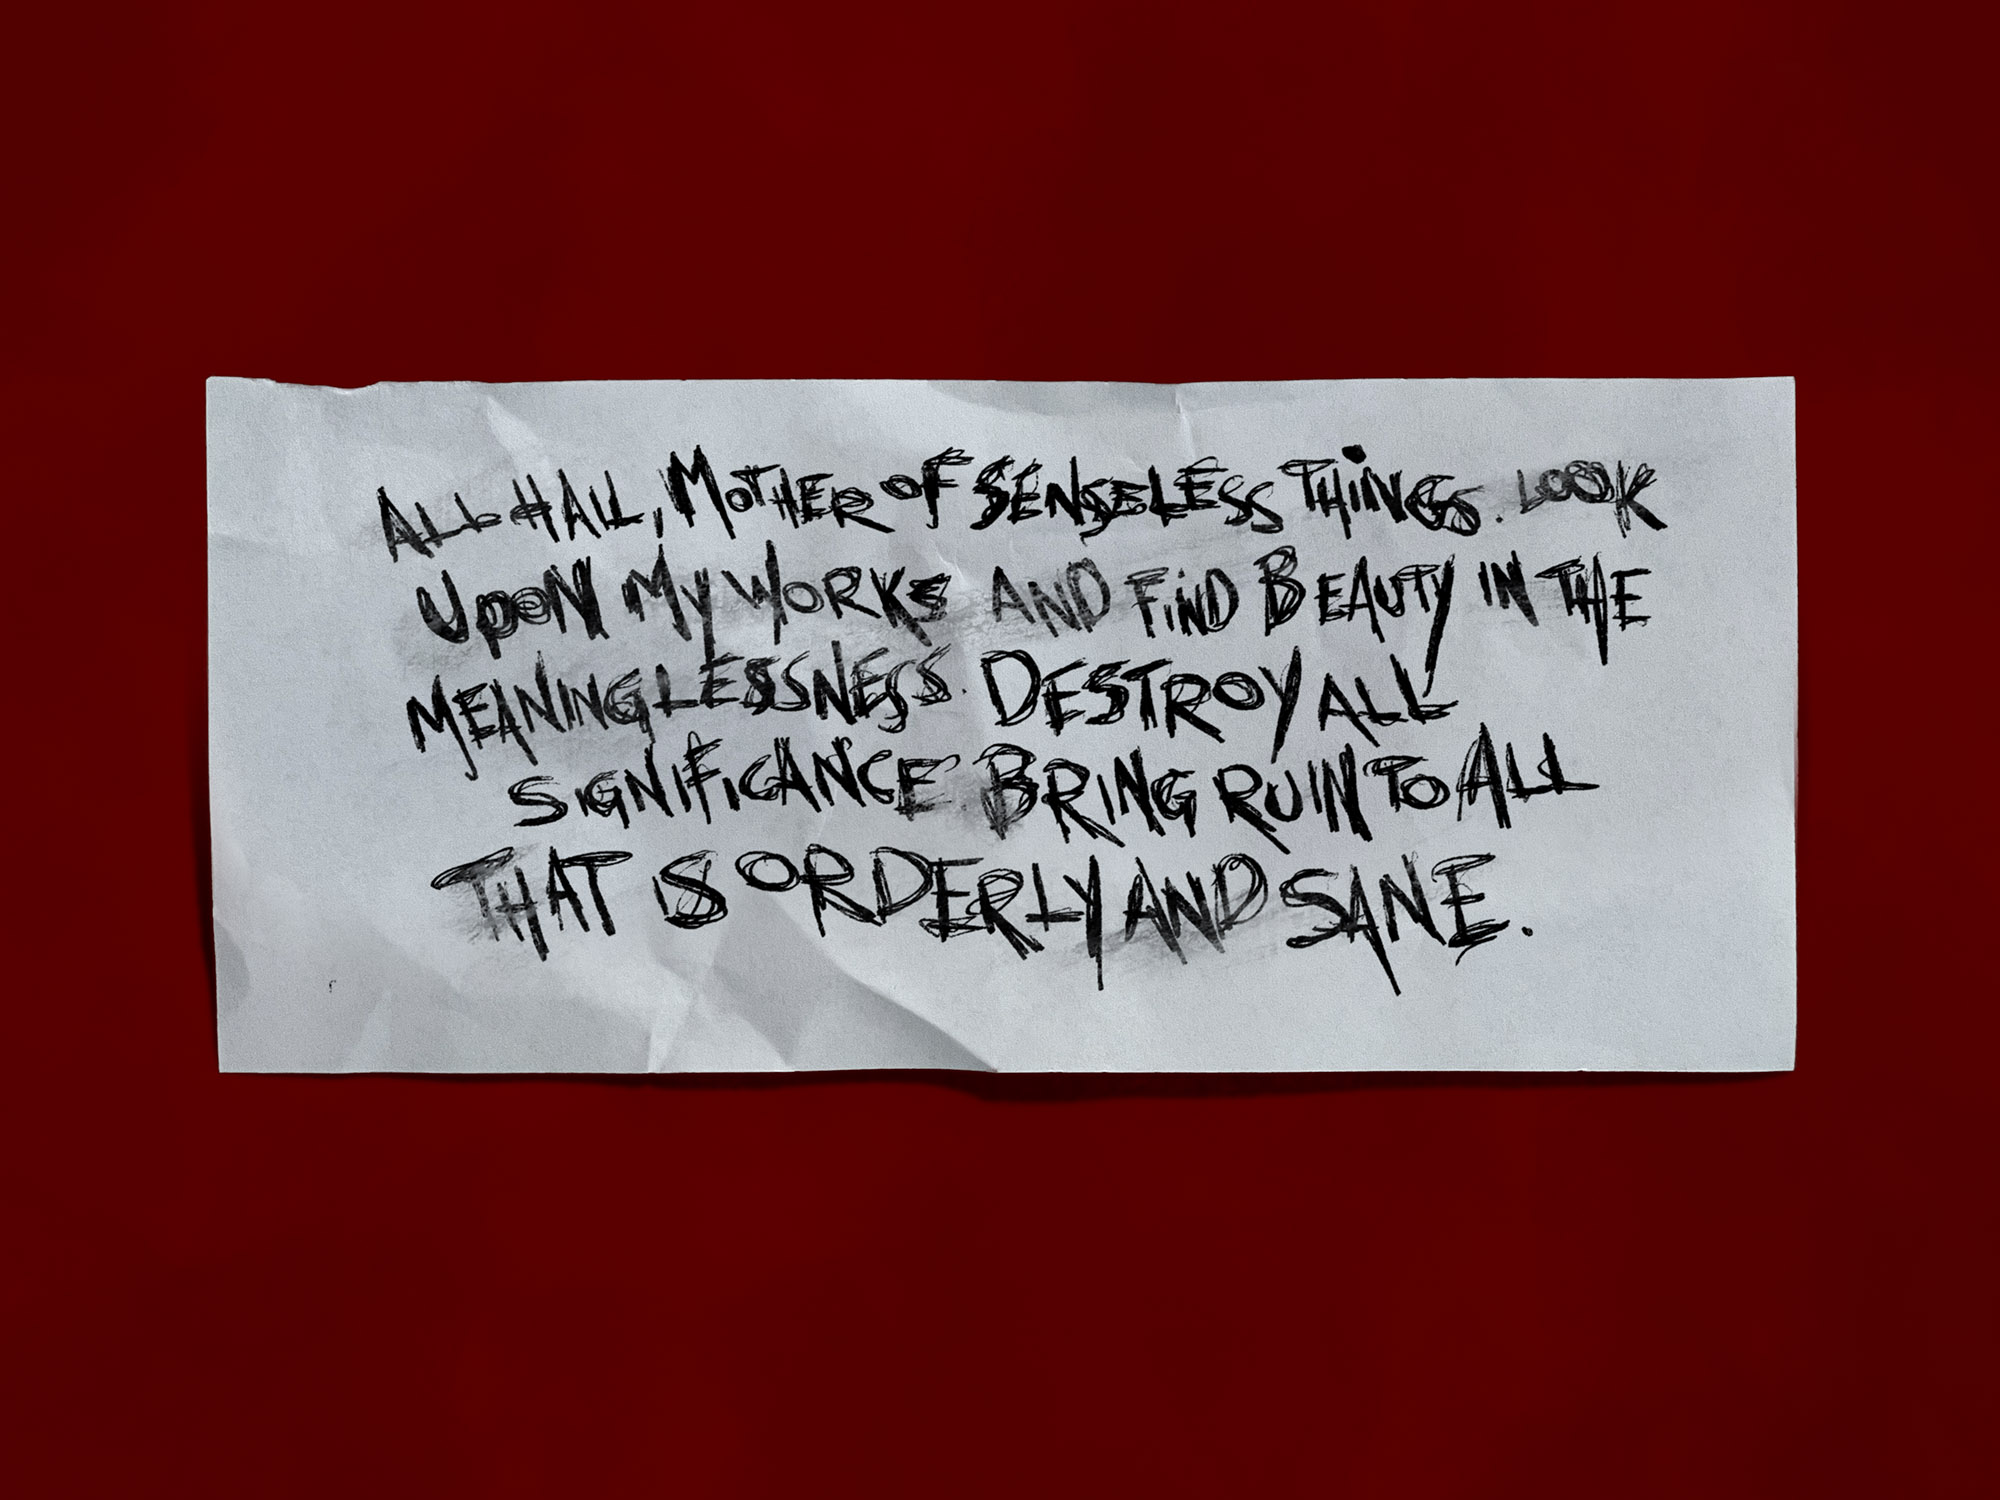 ALL HAIL, MOTHER OF SENSELESS THiNGS. LOOK
UpoN My WORKS AND FiND BEAUTY IN THE
MEANINGLESSNESS. DESTROY ALL
SIGNIFiCANCE. BRiNG RUIN TO ALL
THAT IS ORDERLY AND SANE.